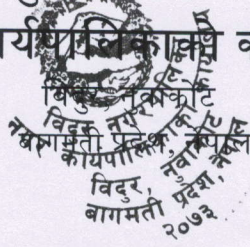 र्यपालिकाको
विदुर, नुवाकोट
बागमती प्रदेश, नेपाल
विदुर नगरपालिका
नगर कार्यपालिकाको कार्यालय
विदुर, नुवाकोट
बागमती प्रदेश, नेपाल
२०७३